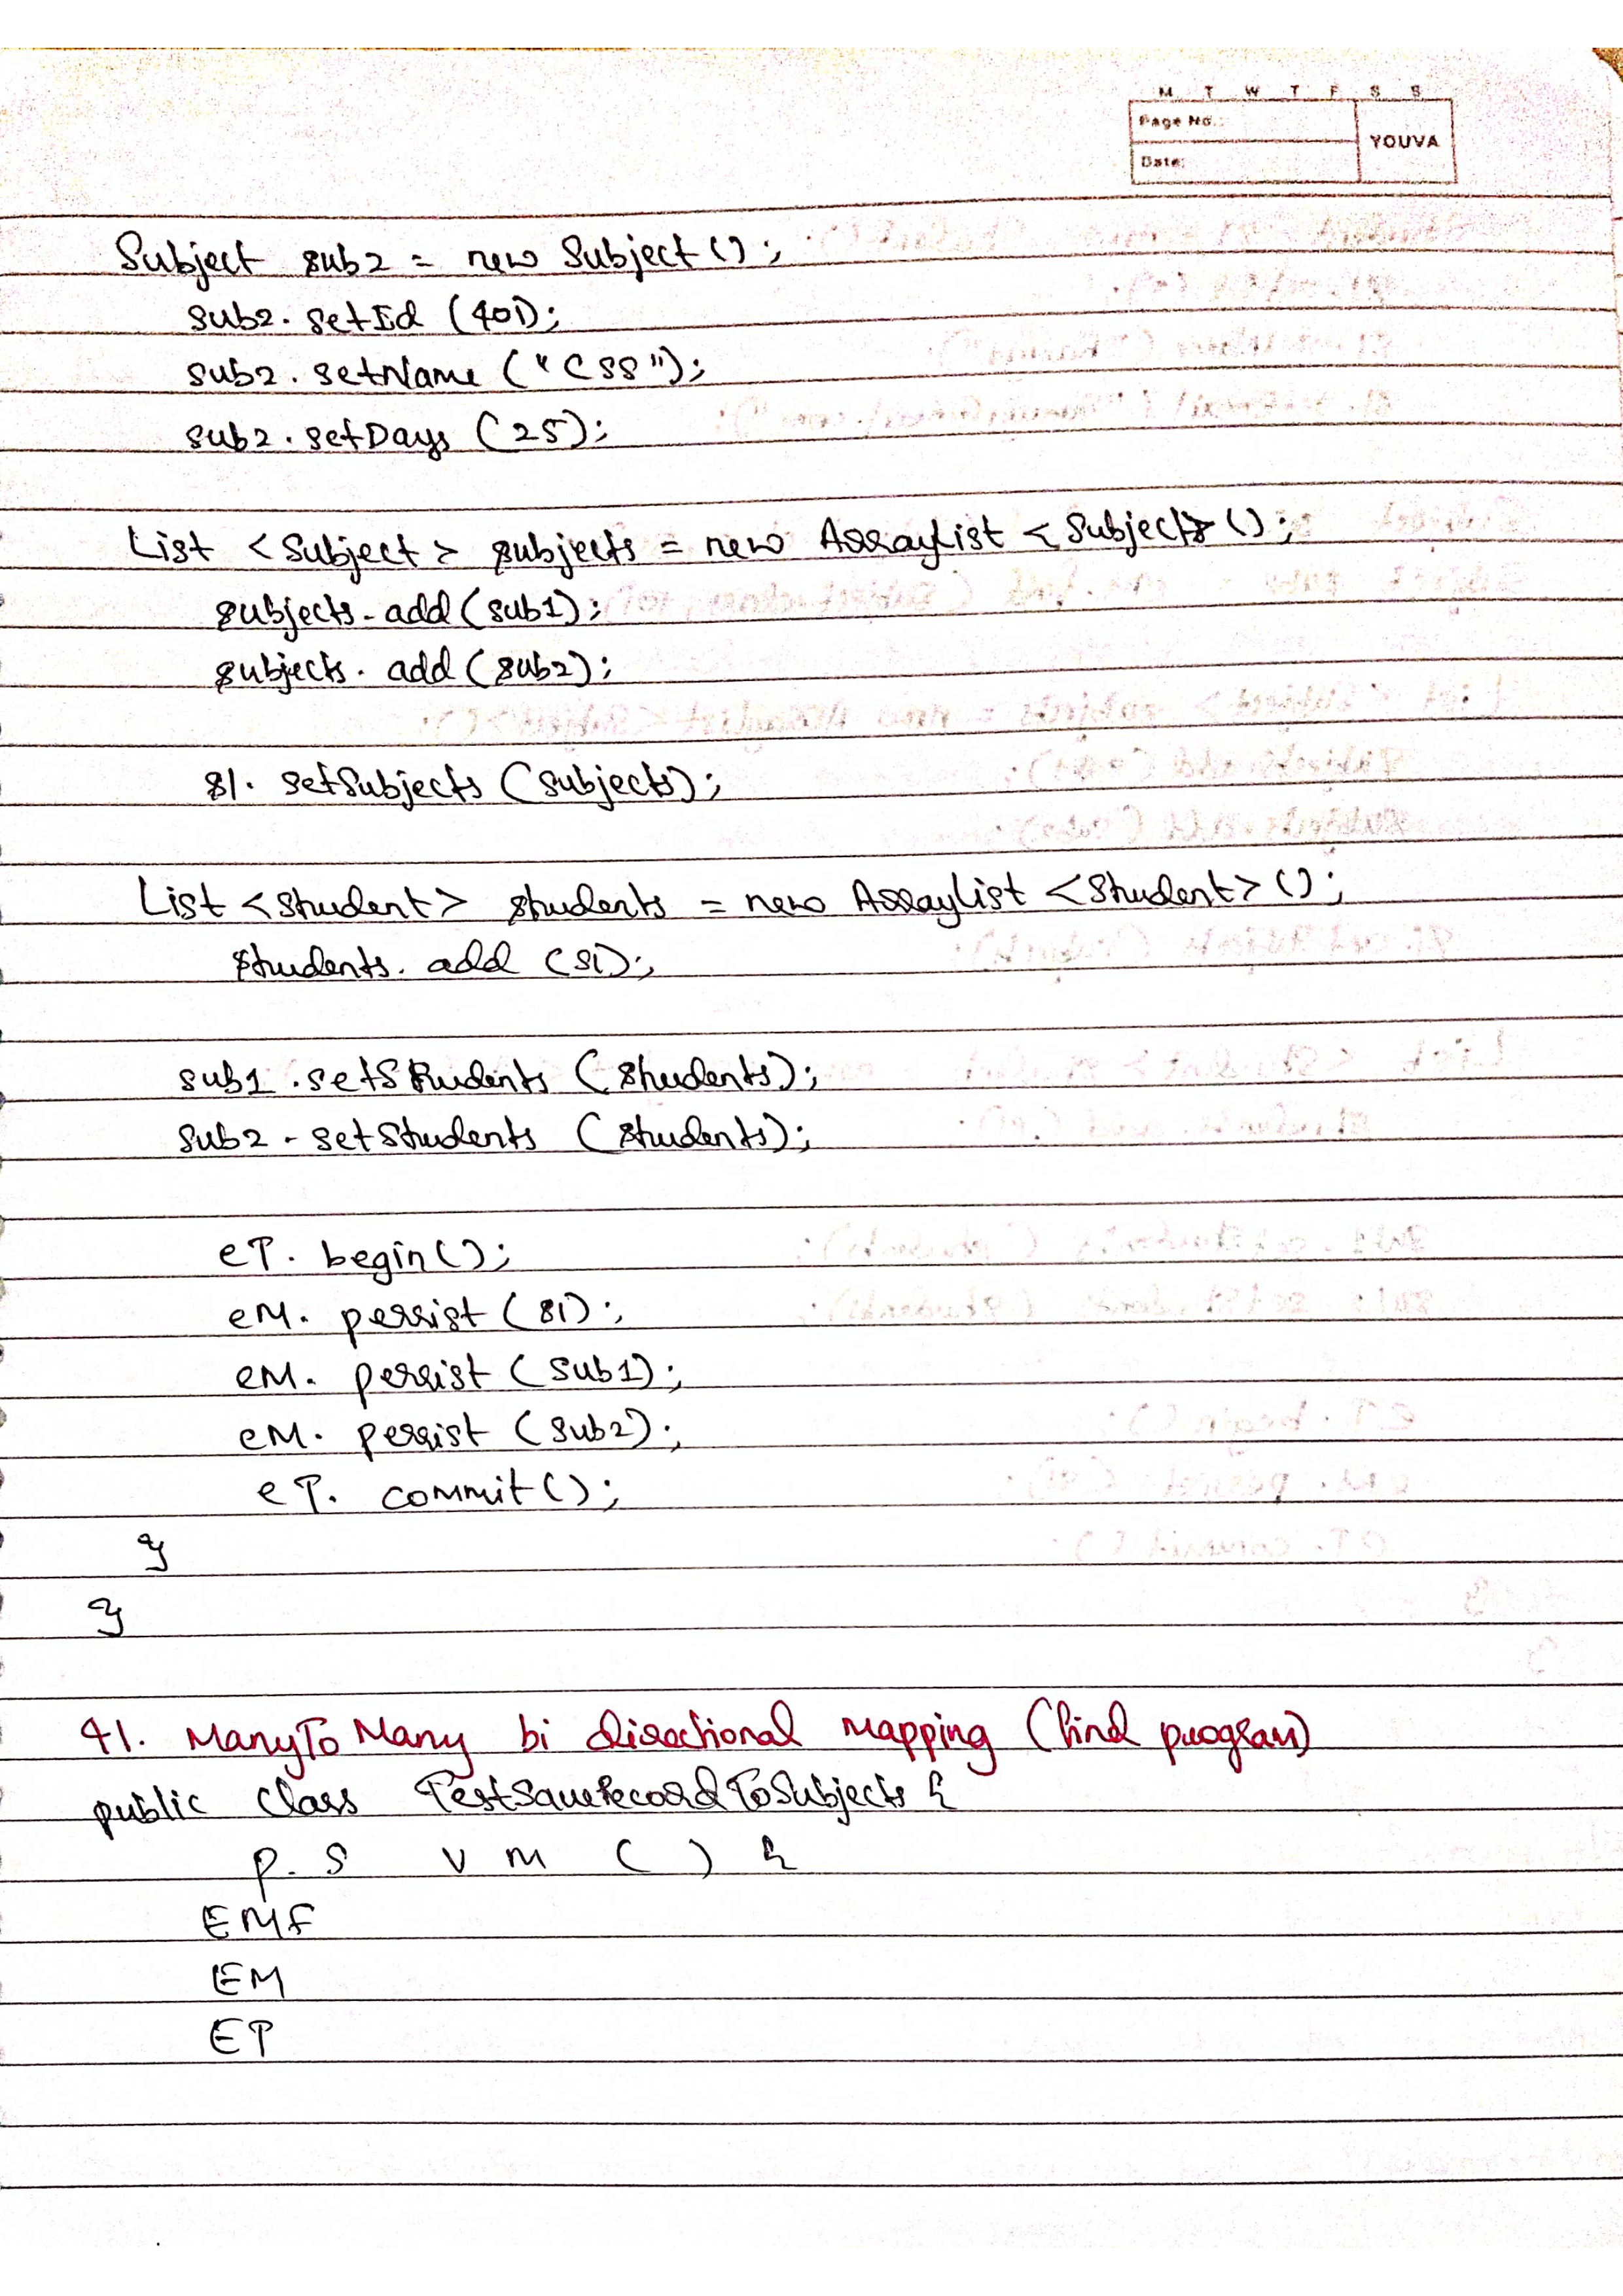 M T W T F S S
Page No.:
YOUVA
Date:
Subject sub2 = new Subject();
sub2.setId (401);
sub2.setName ("CSS");
sub2.setDays (25);
List <Subject> subjects = new ArrayList <Subject> ();
subjects.add(sub1);
subjects.add(sub2);
s1.setSubjects (subjects);
List <Student> students = new ArrayList <Student> ();
students.add (s1);
sub1.setStudents (students);
sub2.setStudents (students);
eT.begin();
eM.persist (s1);
eM.persist (sub1);
eM.persist (sub2);
eT.commit();
}
}
41. ManyToMany bi directional mapping (find program)
public class TestSaveRecordToSubjects {
p. s v m ( ) {
EMF
EM
ET